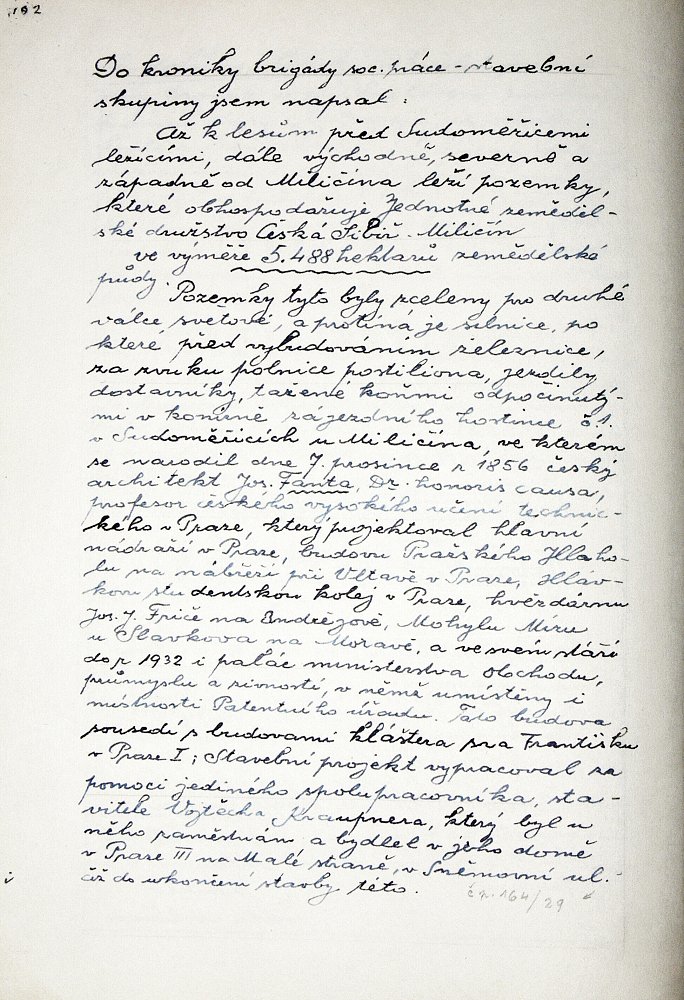 192
Do kroniky brigády soc. práce - stavební
skupiny jsem napsal:
Až k lesům před Sudoměřicemi
ležícími, dále východně, severně a
západně od Miličína leží pozemky,
které obhospodařuje Jednotné zeměděl-
ské družstvo Česká Sibiř - Miličín
ve výměře 5.488 hektarů zemědělské
půdy.
Pozemky tyto byly zceleny pro druhé
válce světové, a protíná je silnice, po
které, před vybudováním železnice,
za zvuku polnice postiliona, jezdily
dostavníky, tažené koňmi odpočinutý-
mi v konírně zájezdního hostince č 1.
v Sudoměřicích u Miličína, ve kterém
se narodil dne 7. prosince r 1856 český
architekt Jos. Fanta, Dr. honoris causa,
profesor českého vysokého učení technic-
kého v Praze, který projektoval hlavní
nádraží v Praze, budovu Pražského Hlaho-
lu na nábřeží při Vltavě v Praze, Hláv-
kovu studentskou kolej v Praze, hvězdárnu
Jos. J. Friče na Ondřejově, Mohylu Míru
u Slavkova na Moravě, a ve svém stáří
do r 1932 i palác ministerstva obchodu,
průmyslu a živností, v němž umístěny i
místnosti Patentního úřadu. Tato budova
sousedí s budovami kláštera sv. Františku
v Praze I; Stavební projekt vypracoval za
pomoci jediného spolupracovníka, sta-
vitele Vojtěcha Kraupnera, který byl u
něho zaměstnán a bydlel v jeho domě
v Praze III na Malé straně, v Sněmovní ul.
až do ukončení stavby této.
č.p. 164/29